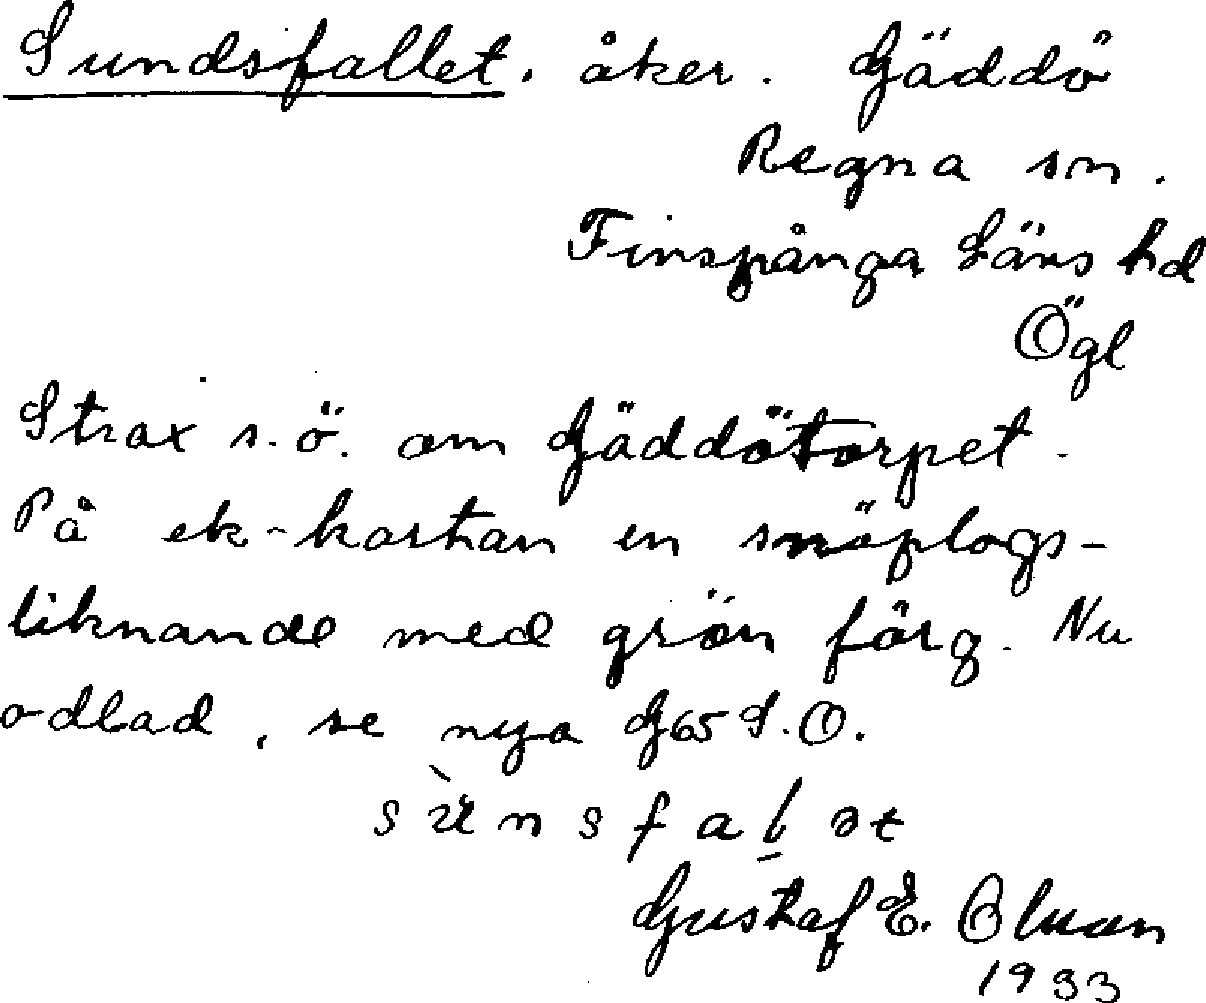 Sundsfallet. åker. Gäddö
Regna sn.
Finspånga Läns hd
Ögl
Strax s.ö. om Gäddötorpet.
På ek-kartan en snöplogs-
liknande med grön färg. Nu
odlad, se nya G65 S.O.
Gustaf E.
1933